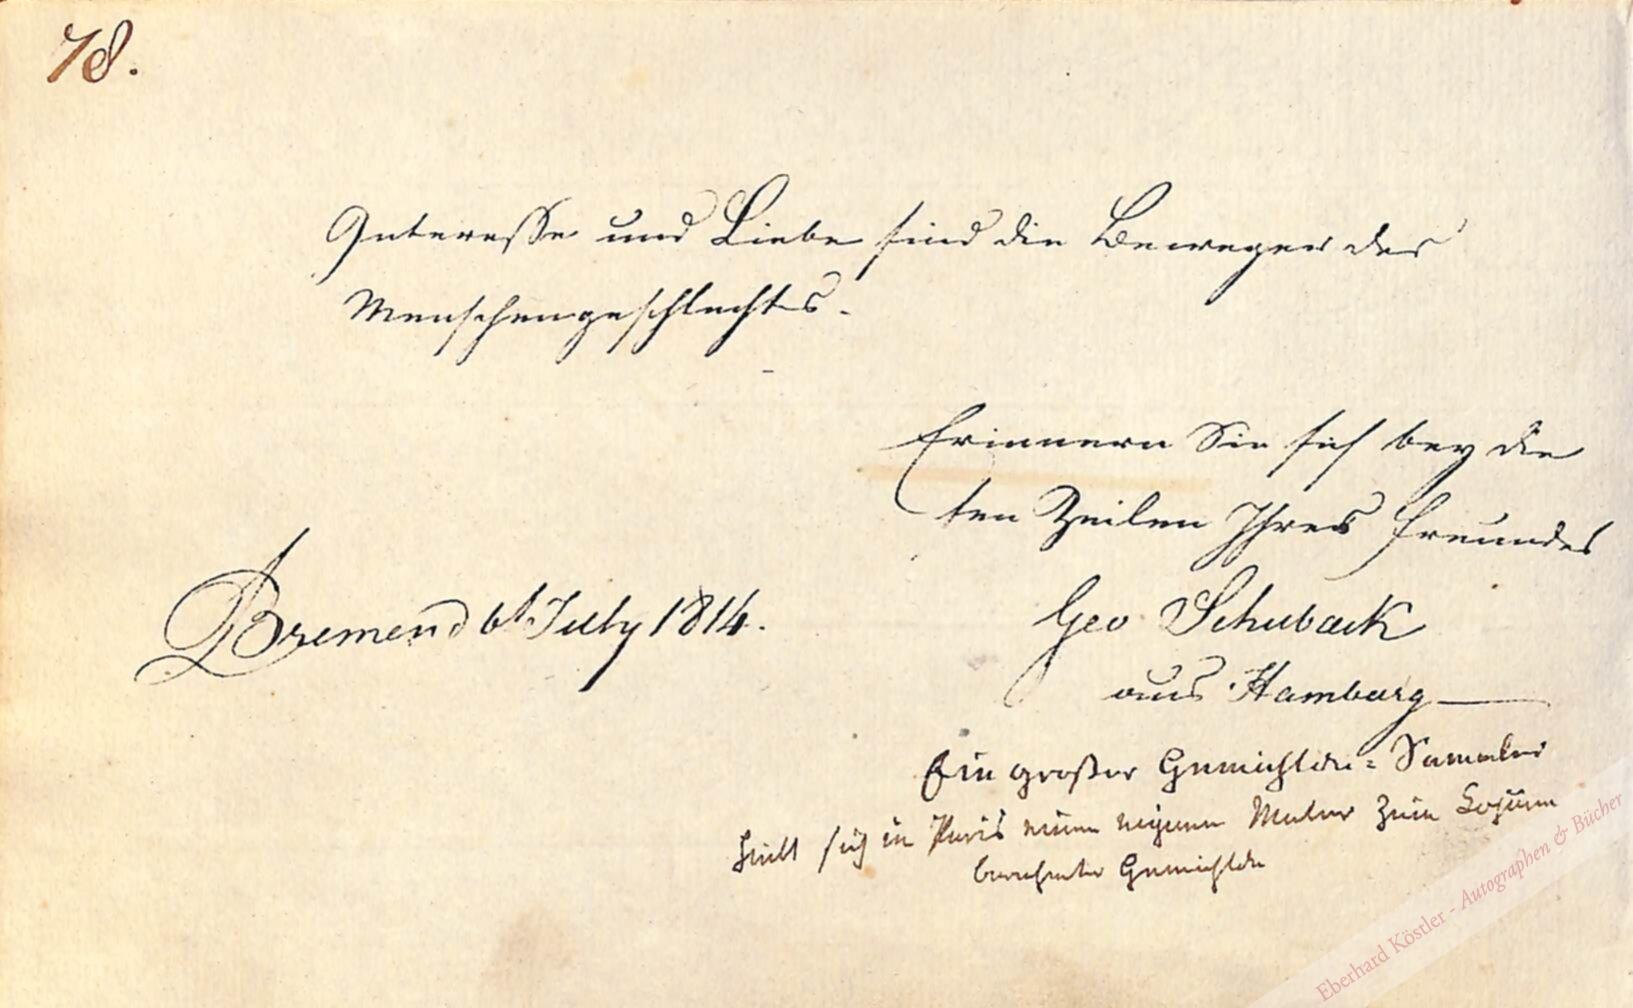 78.
Interesse und Liebe sind die Beweger des
Menschengeschlechts.
Erinnern Sie sich bey die
ten Zeilen Ihres Freundes
Bremen d 6t July 1814.
Geo Schuback
aus Hamburg
Ein großer Gemählde-Sammler
hielt sich in Paris einen eigenen Maler zum Copiren
berühmter Gemählde
Eberhard Köstler - Autographen & Bücher